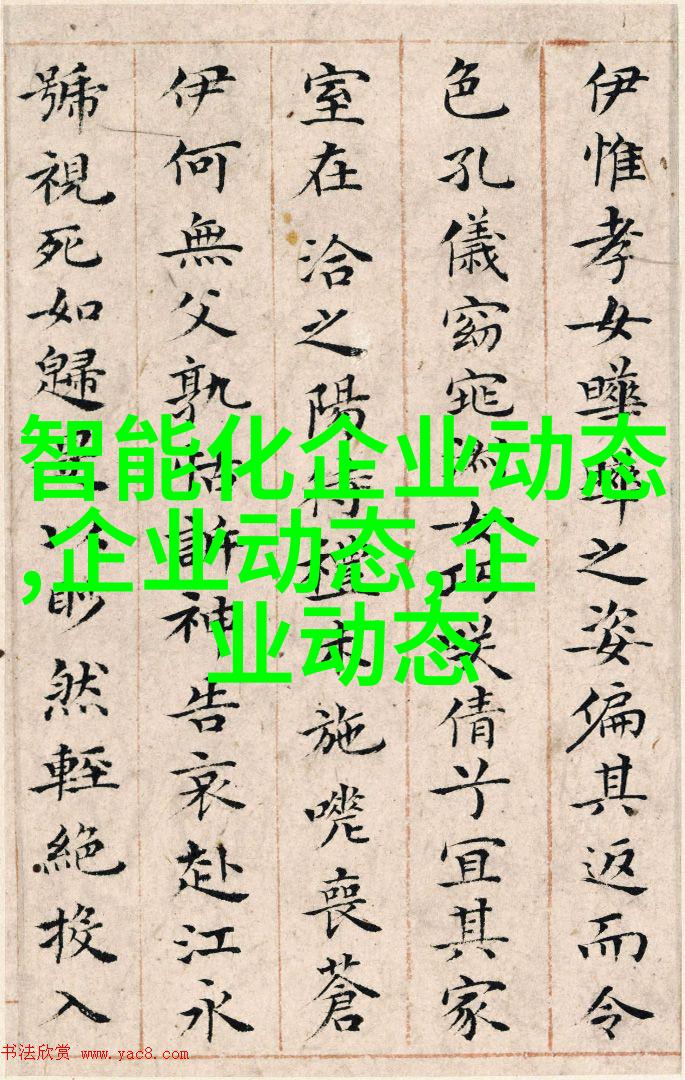 伊惟孝女曄曄之姿偏其返而令
色孔儀窈窕淑女巧笑倩兮宜其家
室在洽之陽待禮未施嗟喪蒼
伊何無父孰怙訴神告哀赴江永
號視死如歸是以眇然輕絕投入
智能化企业动态
,企业动态,企
业动态
书法欣赏 www.yac8.com